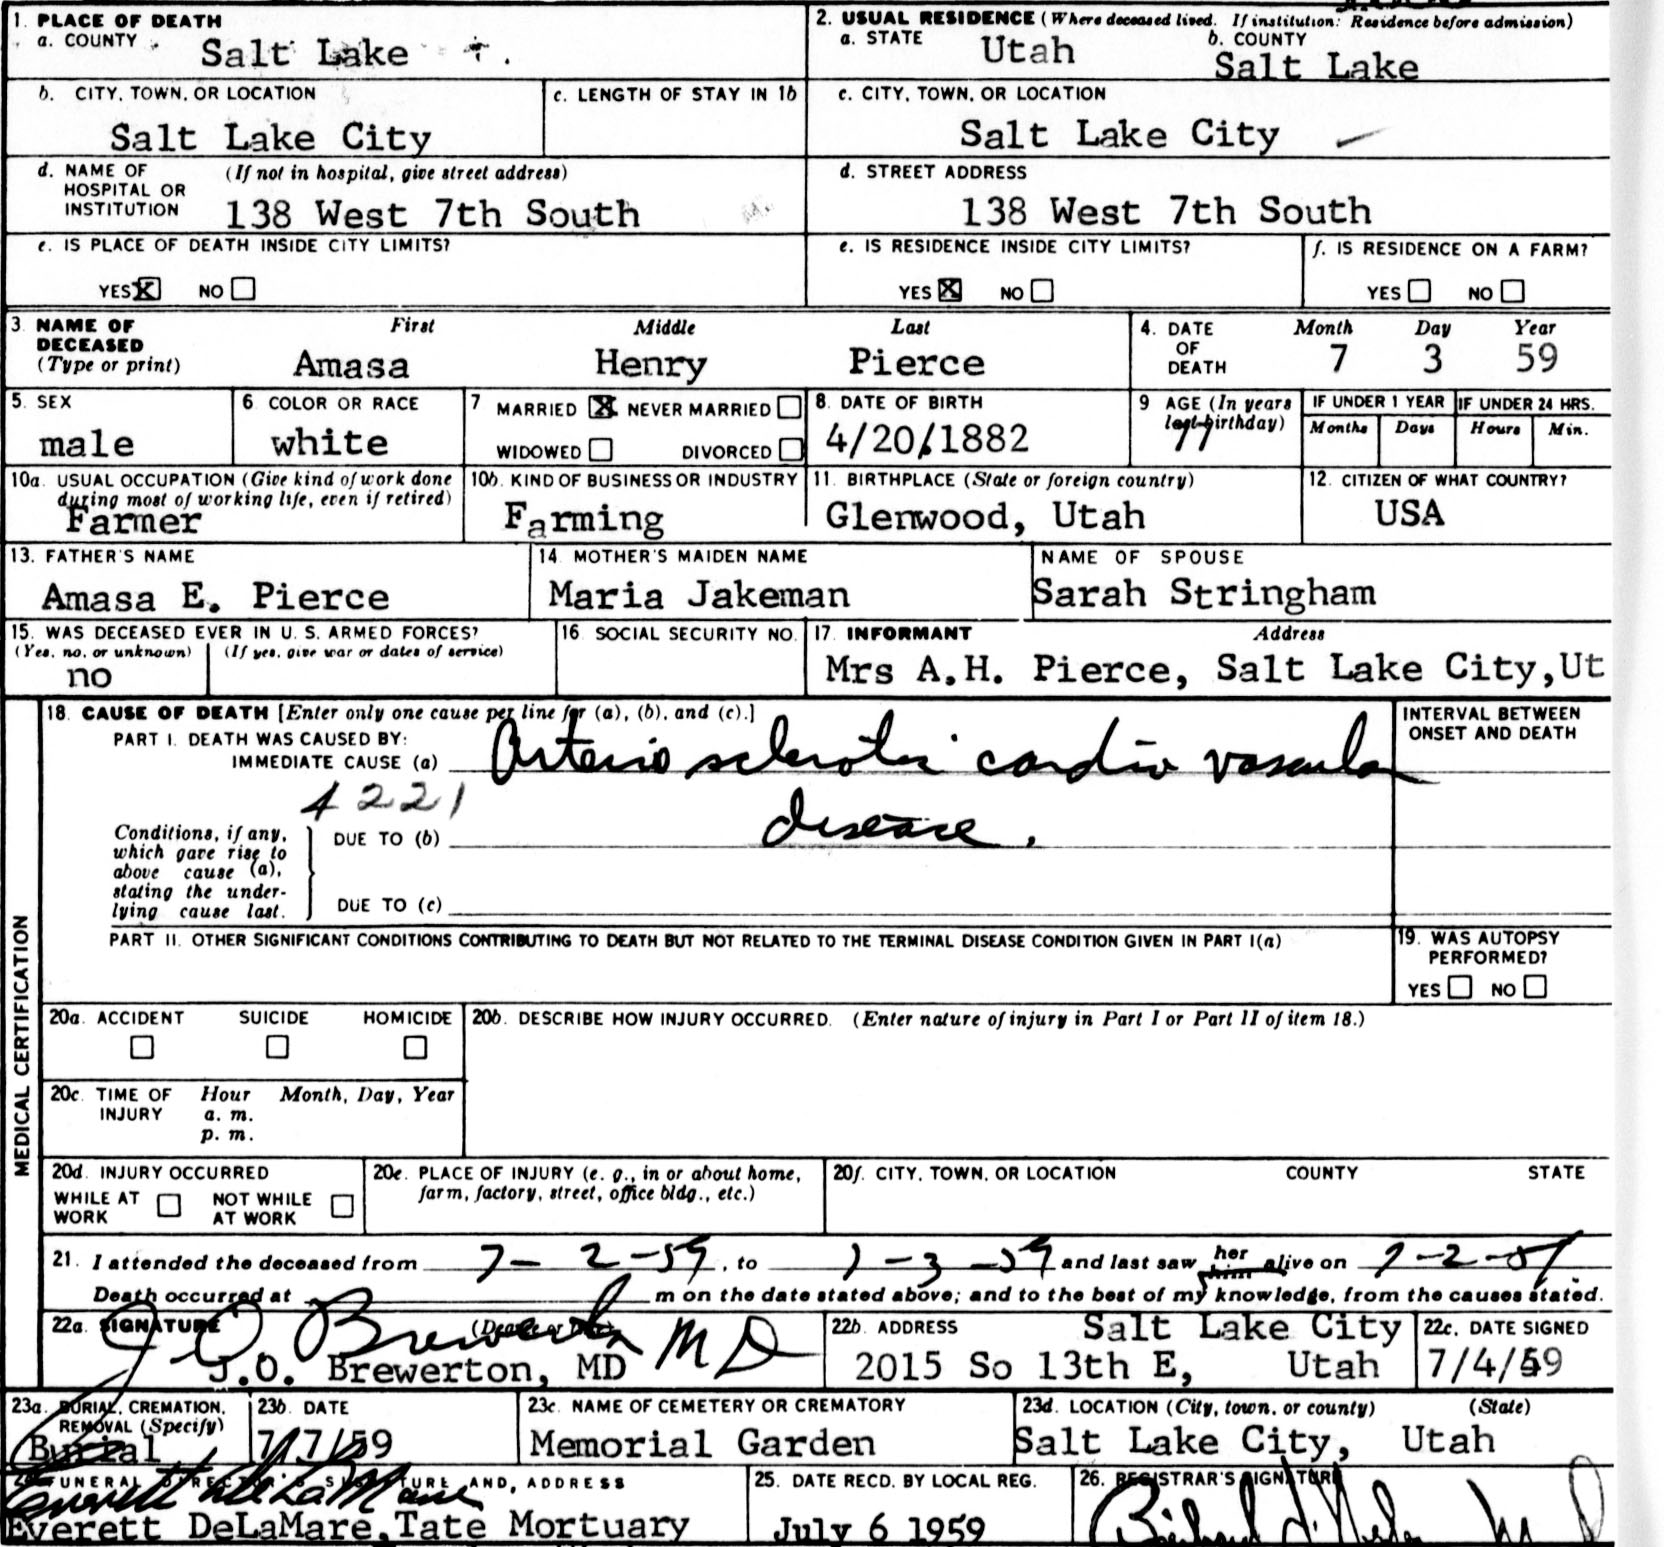 1. PLACE OF DEATH
a. COUNTY Salt Lake
2. USUAL RESIDENCE (Where deceased lived. If institution: Residence before admission)
a. STATE Utah b. COUNTY Salt Lake
b. CITY, TOWN, OR LOCATION Salt Lake City
c. LENGTH OF STAY IN 1b
c. CITY, TOWN, OR LOCATION Salt Lake City
d. NAME OF HOSPITAL OR INSTITUTION (If not in hospital, give street address) 138 West 7th South
d. STREET ADDRESS 138 West 7th South
e. IS PLACE OF DEATH INSIDE CITY LIMITS?
YES X NO
e. IS RESIDENCE INSIDE CITY LIMITS?
YES X NO
f. IS RESIDENCE ON A FARM?
YES NO
3. NAME OF DECEASED (Type or print)
First Middle Last
Amasa Henry Pierce
4. DATE OF DEATH
Month Day Year
7 3 59
5. SEX male
6. COLOR OR RACE white
7 MARRIED X NEVER MARRIED
WIDOWED DIVORCED
8. DATE OF BIRTH 4/20/1882
9 AGE (In years last birthday) 77
IF UNDER 1 YEAR
Months Days
IF UNDER 24 HRS.
Hours Min.
10a. USUAL OCCUPATION (Give kind of work done during most of working life, even if retired)
Farmer
10b. KIND OF BUSINESS OR INDUSTRY
Farming
11. BIRTHPLACE (State or foreign country)
Glenwood, Utah
12. CITIZEN OF WHAT COUNTRY?
USA
13. FATHER'S NAME
Amasa E. Pierce
14. MOTHER'S MAIDEN NAME
Maria Jakeman
NAME OF SPOUSE
Sarah Stringham
15. WAS DECEASED EVER IN U. S. ARMED FORCES?
(Yes, no, or unknown) (If yes, give war or dates of service)
no
16. SOCIAL SECURITY NO.
17. INFORMANT Address
Mrs A.H. Pierce, Salt Lake City,Ut
MEDICAL CERTIFICATION
18. CAUSE OF DEATH [Enter only one cause per line for (a), (b), and (c).]
PART I. DEATH WAS CAUSED BY:
IMMEDIATE CAUSE (a) Arterio sclerotic cardio vascular
4221
disease.
Conditions, if any, which gave rise to above cause (a), stating the underlying cause last.
DUE TO (b)
DUE TO (c)
INTERVAL BETWEEN ONSET AND DEATH
PART II. OTHER SIGNIFICANT CONDITIONS CONTRIBUTING TO DEATH BUT NOT RELATED TO THE TERMINAL DISEASE CONDITION GIVEN IN PART I(a)
19. WAS AUTOPSY PERFORMED?
YES NO
20a. ACCIDENT SUICIDE HOMICIDE
20b. DESCRIBE HOW INJURY OCCURRED. (Enter nature of injury in Part I or Part II of item 18.)
20c. TIME OF INJURY Hour Month, Day, Year
a. m.
p. m.
20d. INJURY OCCURRED
WHILE AT WORK NOT WHILE AT WORK
20e. PLACE OF INJURY (e. g., in or about home, farm, factory, street, office bldg., etc.)
20f. CITY, TOWN, OR LOCATION COUNTY STATE
21. I attended the deceased from 7-2-59, to 7-3-59 and last saw her him alive on 7-2-59.
Death occurred at m on the date stated above; and to the best of my knowledge, from the causes stated.
22a. SIGNATURE (Degree or title)
J O Brewerton MD
J.O. Brewerton, MD
22b. ADDRESS Salt Lake City
2015 So 13th E, Utah
22c. DATE SIGNED
7/4/59
23a. BURIAL, CREMATION, REMOVAL (Specify)
Burial
23b. DATE
7/7/59
23c. NAME OF CEMETERY OR CREMATORY
Memorial Garden
23d. LOCATION (City, town, or county) (State)
Salt Lake City, Utah
24. FUNERAL DIRECTOR'S SIGNATURE AND, ADDRESS
Everett DeLaMare
Everett DeLaMare,Tate Mortuary
25. DATE RECD. BY LOCAL REG.
July 6 1959
26. REGISTRAR'S SIGNATURE